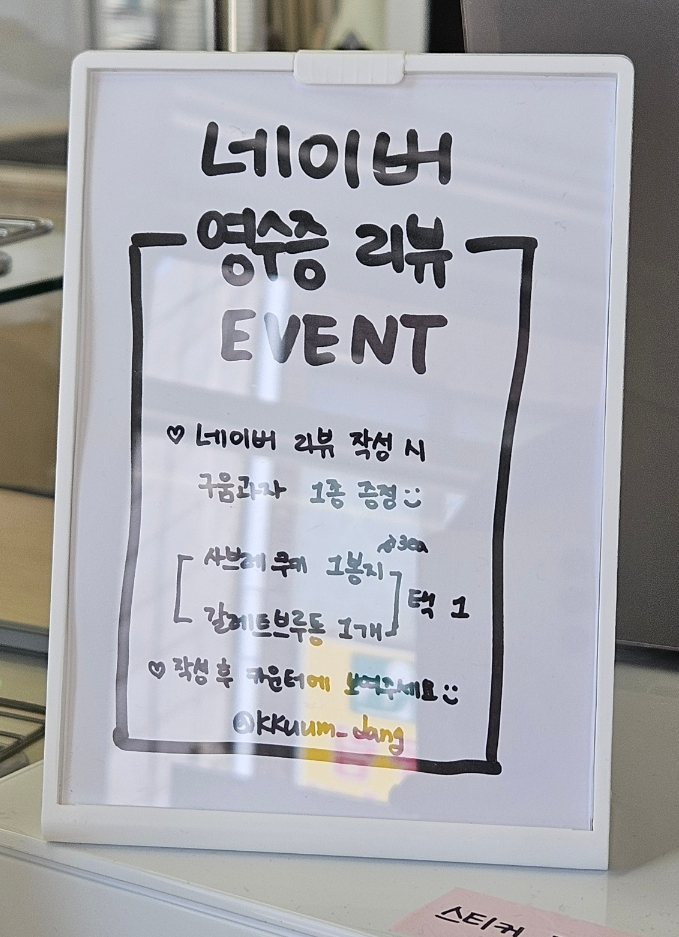 네이버
영수증 리뷰
EVENT
♡ 네이버 리뷰 작성 시
구움과자 1종 증정
3ea
사브레 쿠키 1봉지
갈레트브루통 1개
택 1
♡ 작성 후 카운터에 보여주세요
@kkuum_dang
스티커